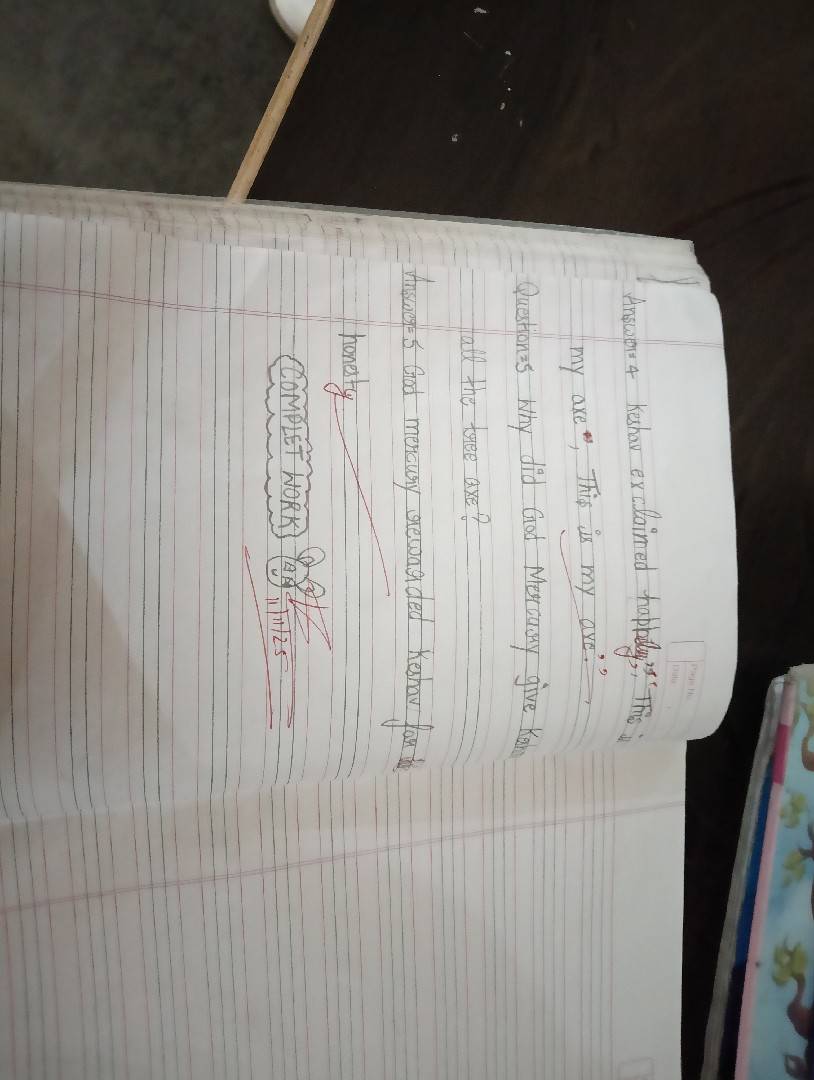 Page No.
Date
Answer=4 Keshav exclaimed happily," This is
my axe", This is my axe."
Question=5 Why did God Mercury give
all the tree axe?
Answer=5 God mercury rewarded Keshav for
honesty
COMPLET WORK
11/11/25